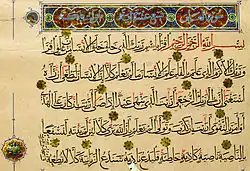 بسم الله الرحمن الرحيم اقرأ باسم ربك الذي خلق خلق الإنسان من علق اقرأ
وربك الأكرم الذي علم بالقلم علم الإنسان ما لم يعلم كلا إن الإنسان ليطغى أن رآه
استغنى إن إلى ربك الرجعى أرأيت الذي ينهى عبدا إذا صلى أرأيت إن كان على الهدى
أو أمر بالتقوى أرأيت إن كذب وتولى ألم يعلم بأن الله يرى كلا لئن لم ينته لنسفعا
بالناصية ناصية كاذبة خاطئة فليدع ناديه سندع الزبانية كلا لا تطعه